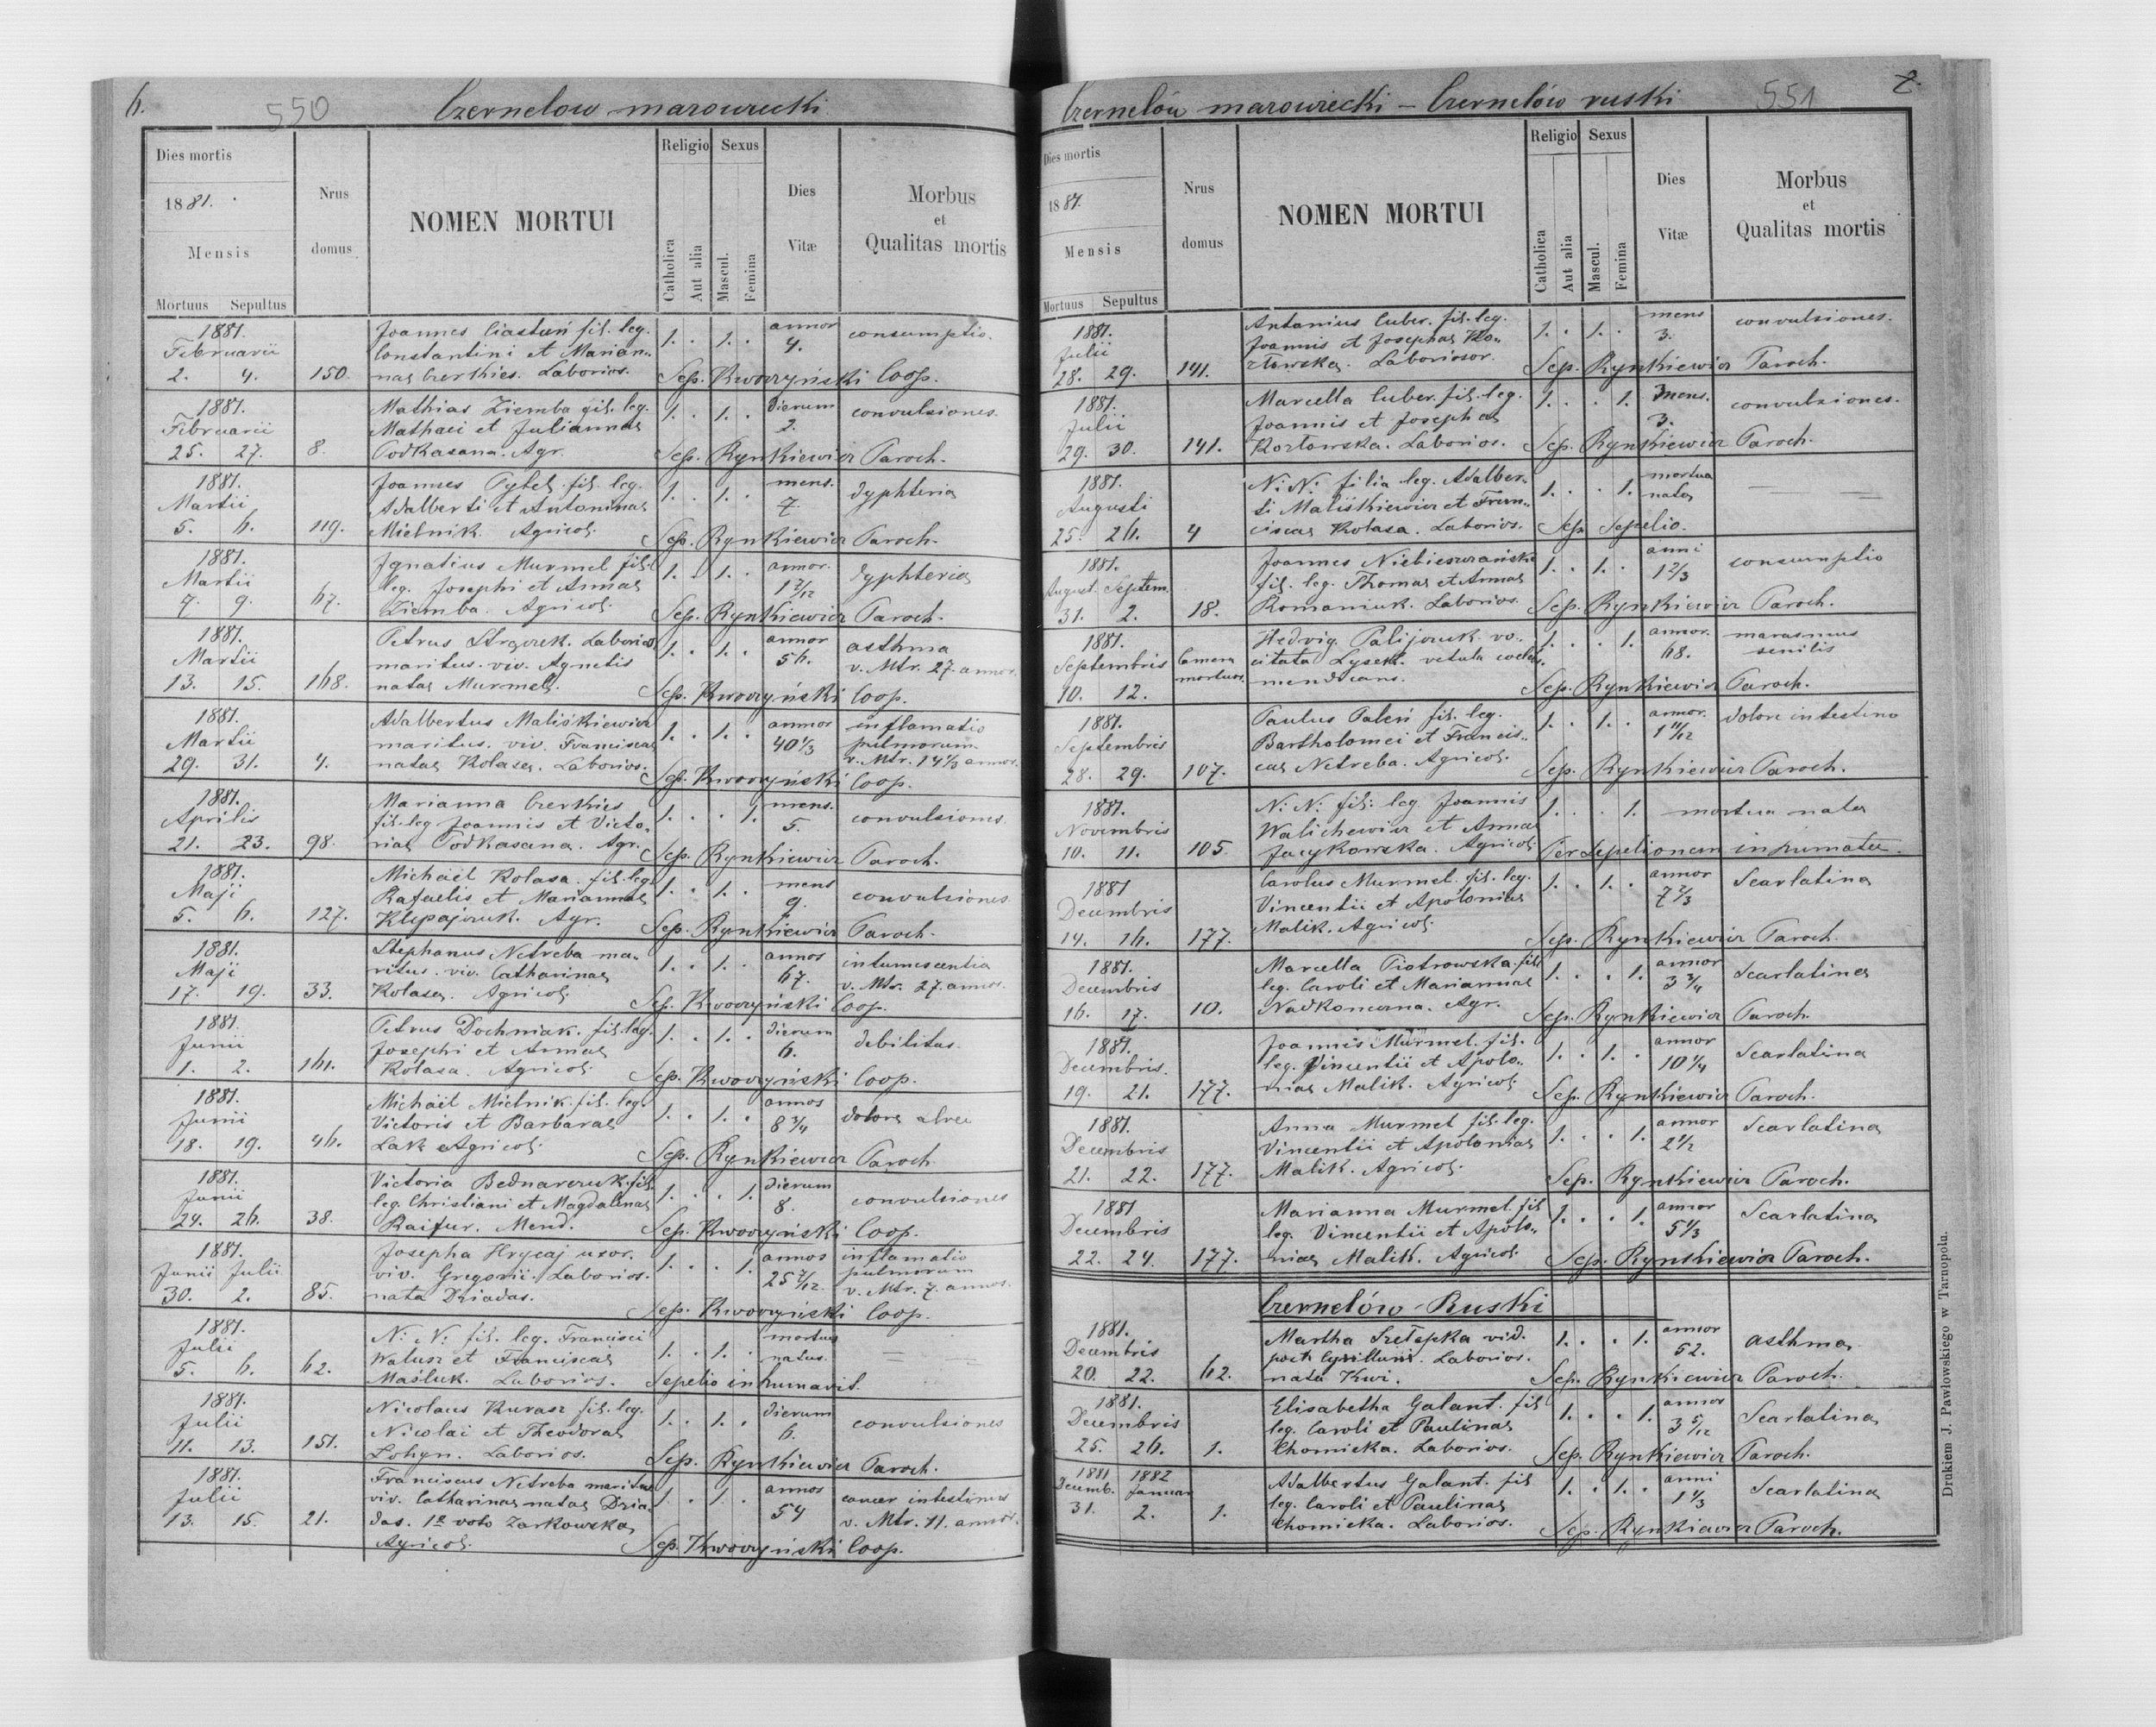 6.
550
Czernelow mazowiecki
Dies mortis
1881.
Mensis
Mortuus Sepultus
Nrus domus
NOMEN MORTUI
Religio
Catholica
Aut alia
Sexus
Mascul.
Femina
Dies Vitæ
Morbus
et
Qualitas mortis
1881. Joannes Ciastuń fil. leg. 1. . 1. . annor consumptio.
Februarii Constantini et Marian- 4.
2. 4. 150. nae Czerkies. Laborios. Sep. Kwoczyński Coop.
1881. Mathias Ziemba fil. leg. 1. . 1. . dierum convulsiones.
Februarii Mathaei et Juliannae 2.
25. 27. 8. Podkasana. Agr. Sep. Rynkiewicz Paroch.
1881. Joannes Pytel fil. leg. 1. . 1. . mens. dyphteria
Martii Adalberti et Antoninae 7.
5. 6. 119. Mielnik. Agricol. Sep. Rynkiewicz Paroch.
1881. Ignatius Murmel fil. 1. . 1. . annor. dyphteria
Martii leg. Josephi et Annae 1 2/12
7. 9. 67. Ziemba. Agricol. Sep. Rynkiewicz Paroch.
1881. Petrus Strączek. Laborios 1. . 1. . annor asthma
Martii maritus. viv. Agnetis 56. v. Mtr. 27 annos.
13. 15. 168. natae Murmel. Sep. Kwoczyński Coop.
1881. Adalbertus Maliśkiewicz 1. . 1. . annor inflamatio
Martii maritus. viv. Franciscae 40 1/3 pulmorum
29. 31. 4. natae Kolasa. Laborios. v. Mtr. 14 1/3 annos.
Sep. Kwoczyński Coop.
1881. Marianna Czerkies 1. . . 1. mens. convulsiones.
Aprilis fil. leg Joannis et Victo- 5.
21. 23. 98. riae Podkasana. Agr. Sep. Rynkiewicz Paroch.
1881. Michaël Kolasa. fil. leg. 1. . 1. . mens convulsiones
Maji Rafaelis et Mariannae 9.
5. 6. 127. Klepajczuk. Agr. Sep. Rynkiewicz Paroch.
1881. Stephanus Netreba ma- 1. . 1. . annos intumescentia
Maji ritus. viv. Catharinae 67. v. Mtr. 27. annos.
17. 19. 33. Kolasa. Agricol. Sep. Kwoczyński Coop.
1881. Petrus Dochniak. fil. leg. 1. . 1. . dierum debilitas.
Junii Josephi et Annae 6.
1. 2. 161. Kolasa. Agricol. Sep. Kwoczyński Coop.
1881. Michaël Mielnik. fil. leg. 1. . 1. . annos dolore alvei
Junii Victoris et Barbarae 8 3/4
18. 19. 46. Lak Agricol. Sep. Rynkiewicz Paroch
1881. Victoria Bednarczuk. fil. 1. . . 1. dierum convulsiones
Junii leg. Christiani et Magdalenae 8.
24. 26. 38. Raifur. Mend. Sep. Kwoczyński Coop.
1881. Josepha Hrycaj uxor. 1. . . 1. annos inflamatio
Junii Julii viv. Gregorii. Laborios. 25 7/12 pulmorum
30. 2. 85. nata Dziadas. v. Mtr. 7. annos.
Sep. Kwoczyński Coop.
1881. N: N: fil. leg. Francisci 1. . 1. . mortuus
Julii Walusz et Franciscae natus.
5. 6. 62. Maśluk. Laborios. Sepelio inhumavit.
1881. Nicolaus Kurasz fil. leg. 1. . 1. . dierum convulsiones
Julii Nicolai et Theodorae 6.
11. 13. 151. Laborios. Sep. Rynkiewicz Paroch.
1881. Franciscus Netreba maritus 1. . 1. . annos cancer intestinus
Julii viv. Catharinae natae Dzia- 54 v. Mtr. 11. annos.
13. 15. 21. das. 1º voto Zarkowska
Agricol. Sep. Kwoczyński Coop.
7.
551
Czernelów mazowiecki – Czernelów ruski
Dies mortis
1881.
Mensis
Mortuus Sepultus
Nrus domus
NOMEN MORTUI
Religio
Catholica
Aut alia
Sexus
Mascul.
Femina
Dies Vitæ
Morbus
et
Qualitas mortis
1881. Antonius Cuber. fil. leg. 1. . 1. . mens convulsiones.
Julii Joannis et Josephae Ko- 3.
28. 29. 141. złowska. Laboriosor. Sep. Rynkiewicz Paroch.
1881. Marcella Cuber. fil. leg. 1. . . 1. mens. convulsiones.
Julii Joannis et Josephae 3.
29. 30. 141. Kozłowska. Laborios. Sep. Rynkiewicz Paroch.
1881. N: N: filia leg. Adalber- 1. . . 1. mortua
Augusti ti Maliśkiewicz et Fran- nata
25. 26. 4 ciscae Kolasa. Laborios. Sep. Sepelio.
1881. Joannes Niebieszczański 1. . 1. . anni consumptio
August. Septem. fil. leg. Thomae et Annae 1 2/3
31. 2. 18. Romaniuk. Laborios. Sep. Rynkiewicz Paroch.
1881. Hedvig. Palijczuk. vo- 1. . . 1. annor. marasmus
Septembris Camera citata Lysek. vetula coeleb. 68. senilis
10. 12. mortuor. mendicans. Sep. Rynkiewicz Paroch.
1881. Paulus Paleń fil. leg. 1. . 1. . annor. dolore intestino
Septembris Bartholomei et Francis- 1 11/12
28. 29. 107. cae Netreba. Agricol. Sep. Rynkiewicz Paroch.
1881. N: N: fil: leg. Joannis 1. . . 1. mortua nata
Novembris Walichewicz et Annae
10. 11. 105. Jacykowska. Agricol. Per Sepelionem inhumata.
1881 Carolus Murmel. fil. leg. 1. . 1. . annor Scarlatina
Decembris Vincentii et Apoloniae 7 2/3
14. 16. 177. Malik. Agricol. Sep. Rynkiewicz Paroch.
1881. Marcella Piotrowska. fil. 1. . . 1. annor Scarlatina
Decembris leg. Caroli et Mariannae 3 3/4
16. 17. 10. Nadkoneczna. Agr. Sep. Rynkiewicz Paroch.
1881. Joannes Murmel. fil. 1. . 1. . annor Scarlatina
Decembris. leg. Vincentii et Apolo- 10 1/4
19. 21. 177. niae Malik. Agricol. Sep. Rynkiewicz Paroch.
1881. Anna Murmel fil. leg. 1. . . 1. annor Scarlatina
Decembris Vincentii et Apoloniae 2 1/2
21. 22. 177. Malik. Agricol. Sep. Rynkiewicz Paroch.
1881 Marianna Murmel. fil 1. . . 1. annor Scarlatina
Decembris leg. Vincentii et Apolo- 5 1/3
22. 24. 177. niae Malik. Agricol. Sep. Rynkiewicz Paroch.
Czernelów-Ruski
1881. Martha Szełepka vid. 1. . . 1. annor asthma
Decembris post Laborios. 52.
20. 22. 62. nata Kwi. Sep. Rynkiewicz Paroch.
1881. Elisabetha Galant. fil 1. . . 1. annor Scarlatina
Decembris leg. Caroli et Paulinae 3 5/12
25. 26. 1. Chomicka. Laborios. Sep. Rynkiewicz Paroch.
1881 1882 Adalbertus Galant. fil 1. . 1. . anni Scarlatina
Decemb. Januar leg. Caroli et Paulinae 1 1/3
31. 2. 1. Chomicka. Laborios. Sep. Rynkiewicz Paroch.
Drukiem J. Pawłowskiego w Tarnopolu.